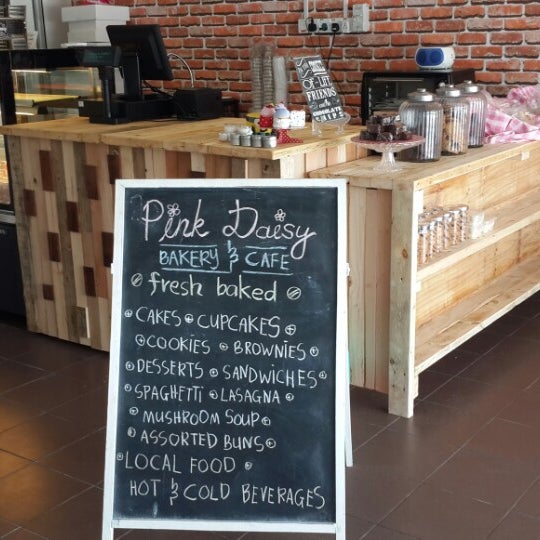 Pink Daisy
BAKERY & CAFE
fresh baked
CAKES CUPCAKES
COOKIES BROWNIES
DESSERTS SANDWICHES
SPAGHETTI LASAGNA
MUSHROOM SOUP
ASSORTED BUNS
LOCAL FOOD
HOT & COLD BEVERAGES
SWEET
OF-LIFE
FRIENDS
CHOCOLATE
CHIPS